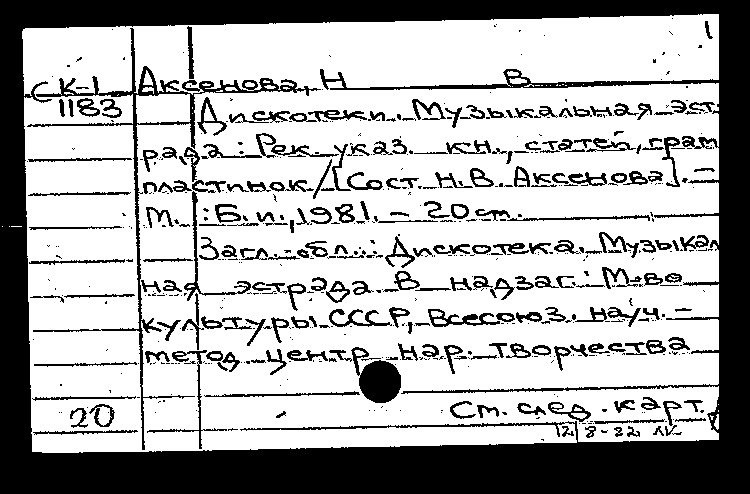 1
СК-1 Аксенова, Н В
1183 Дискотеки. Музыкальная эст
рада : Рек. указ. кн., статей, грам
пластинок / [Сост. Н. В. Аксенова]. –
М. : Б. и., 1981. – 20 см.
Загл. обл.: Дискотека. Музыкал
ная эстрада. В надзаг.: М-во
культуры СССР, Всесоюз. науч. –
метод центр нар. творчества
20 См. след. карт.
12 8-82